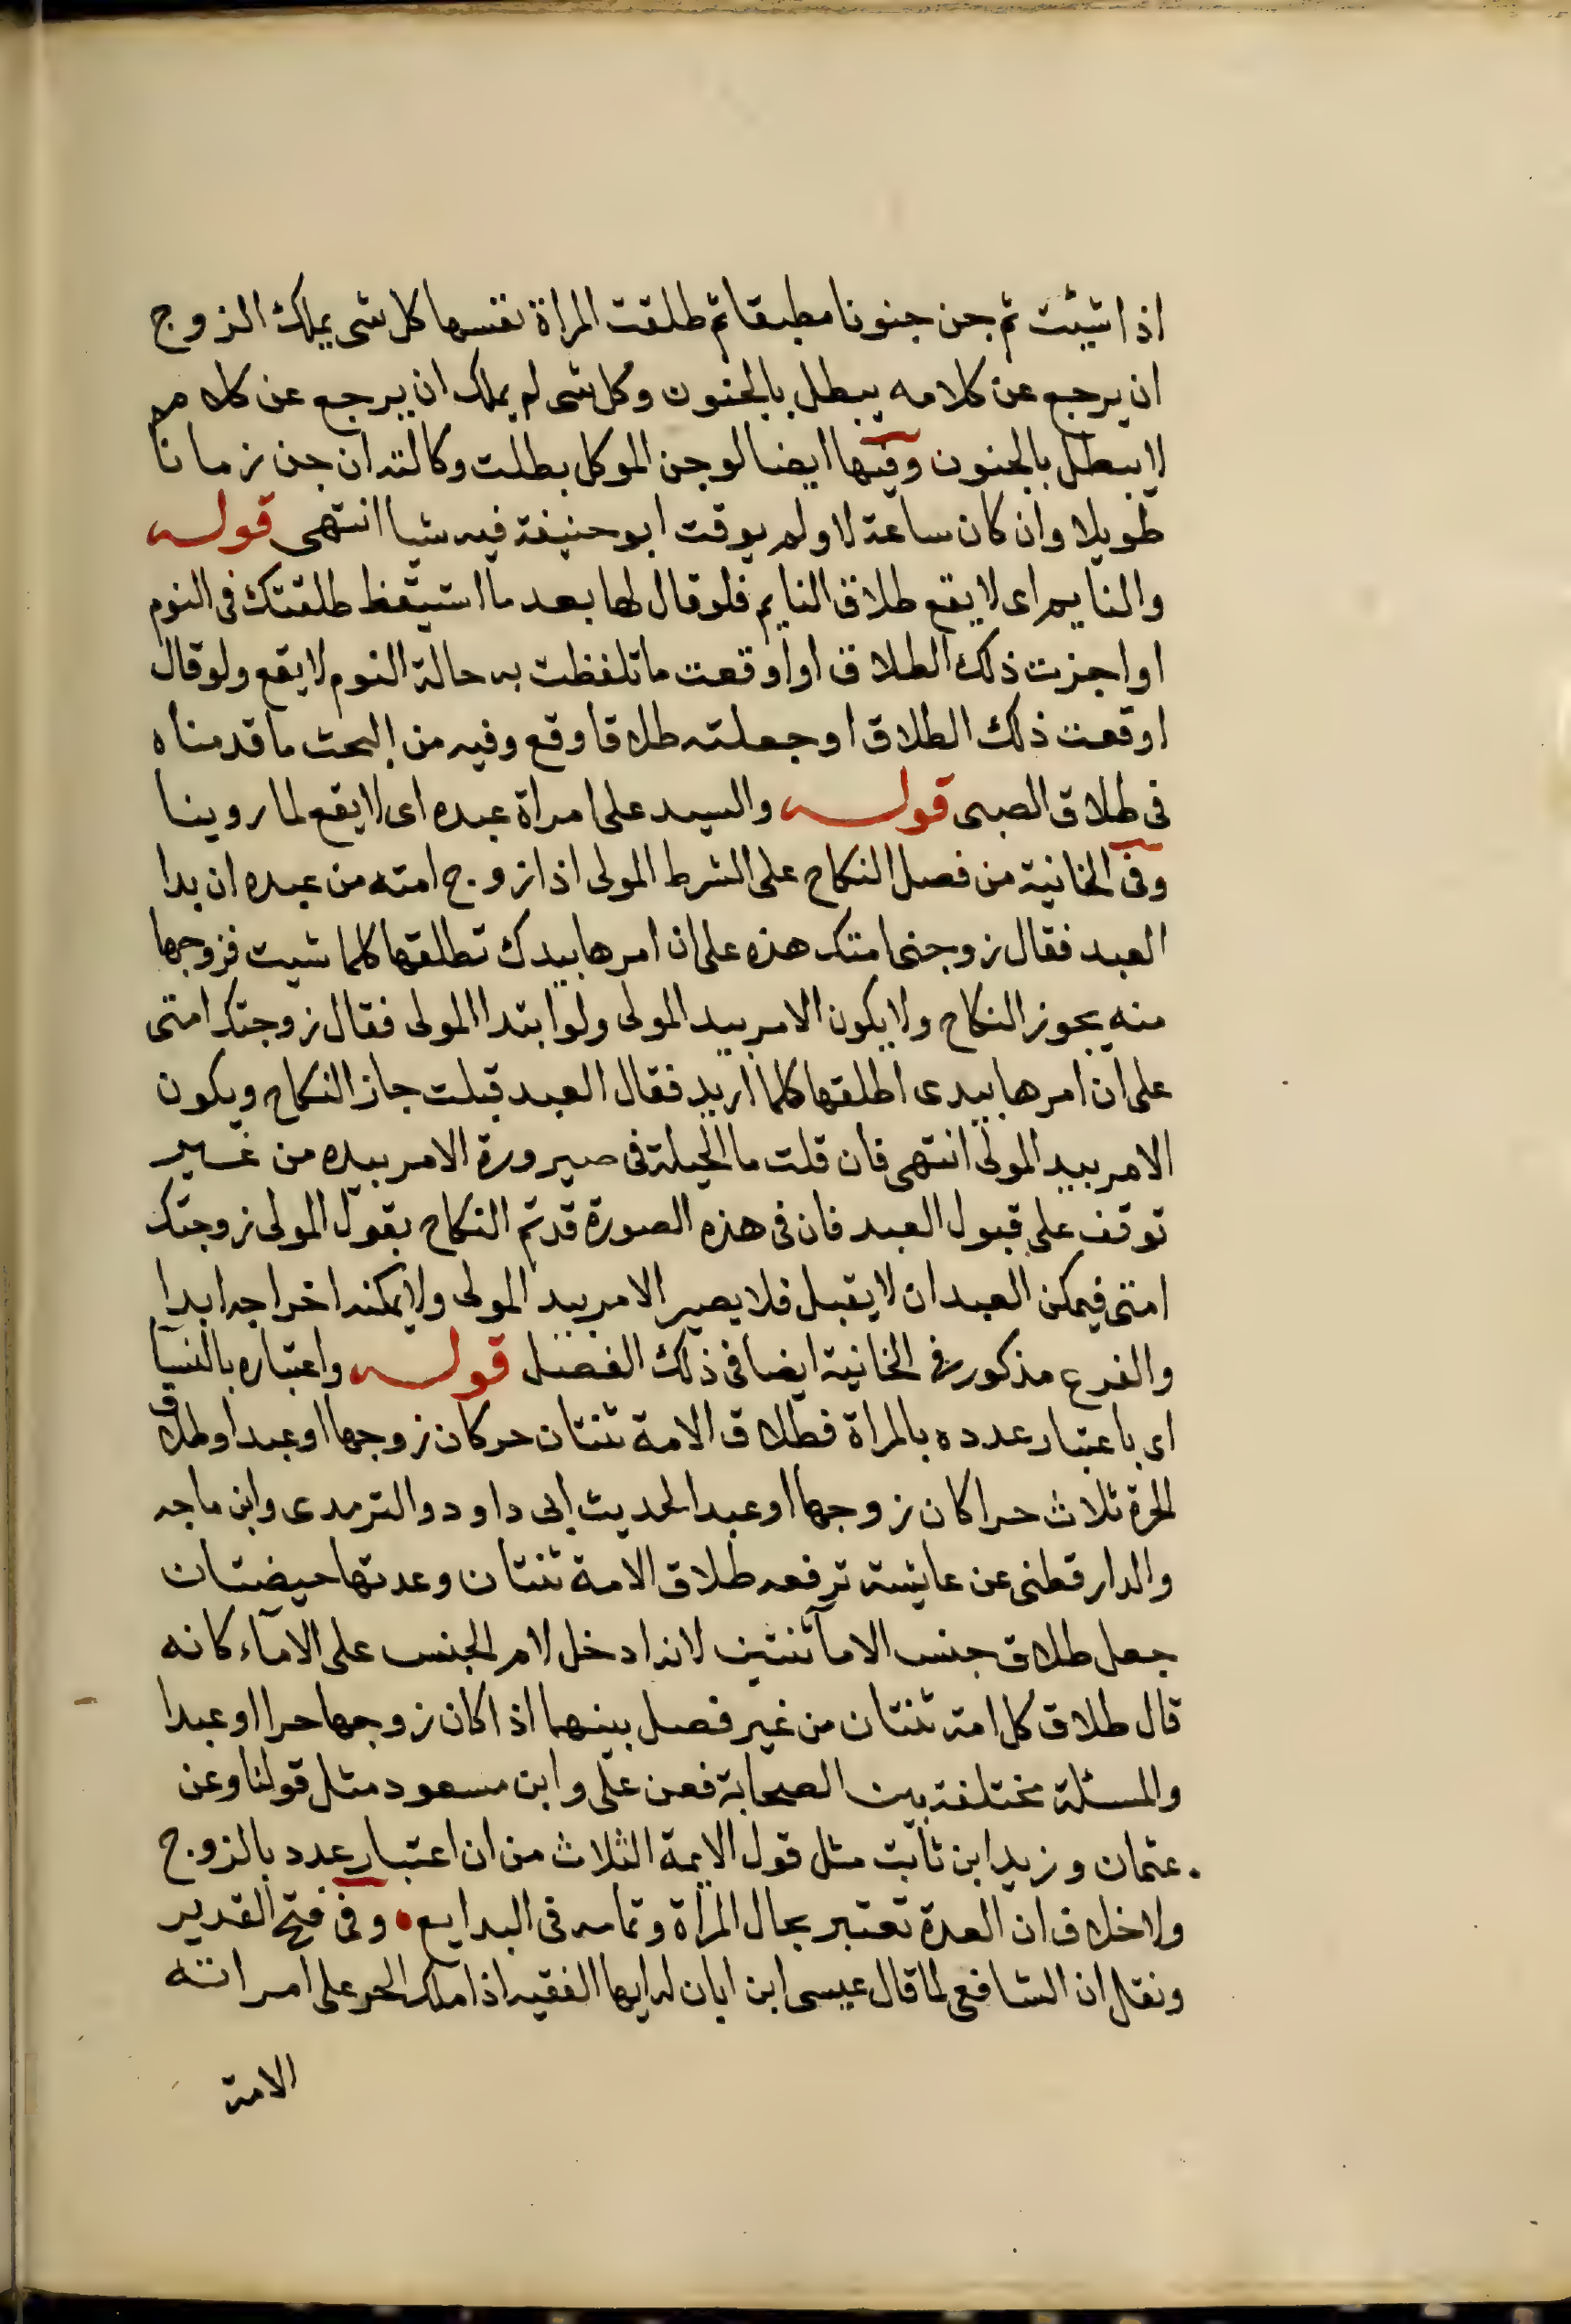 اذا شيئت ثم جن جنونا مطبقا ثم طلقت المراة نفسها كل شى يملك الزوج
ان يرجع عن كلامه يبطل بالجنون وكل شى لم يملك ان يرجع عن كلامه
لا يبطل بالجنون وفيها ايضا لو جن الموكل بطلت وكالته ان جن زمانا
طويلا وان كان ساعة لا ولم يوقت ابو حنيفة فيه شيا انتهى قوله
والنايم اى لا يقع طلاق النايم فلو قال لها بعد ما استيقظ طلقتك فى النوم
او اجزت ذلك الطلاق او اوقعت ما تلفظت به حالة النوم لا يقع ولو قال
اوقعت ذلك الطلاق او جعلته طلاقا وقع وفيه من البحث ما قدمناه
فى طلاق الصبى قوله والسيد على امراة عبده اى لا يقع لما روينا
وفى الخانية من فصل النكاح على الشرط المولى اذا زوج امته من عبده ان بدا
العبد فقال زوجنى امتك هذه على ان امرها بيدك تطلقها كلما شيت فزوجها
منه يجوز النكاح ولا يكون الامر بيد المولى ولو ابتدا المولى فقال زوجتك امتى
على ان امرها بيدى اطلقها كلما اريد فقال العبد قبلت جاز النكاح ويكون
الامر بيد المولى انتهى فان قلت ما الحيلة فى صيرورة الامر بيده من غير
توقف على قبول العبد فان فى هذه الصورة قد تم النكاح بقول المولى زوجتك
امتى فيمكن العبد ان لا يقبل فلا يصير الامر بيد المولى ولا يمكنه اخراجه ابدا
والفرع مذكور فى الخانية ايضا فى ذلك الفصل قوله واعتباره بالنسآ
اى باعتبار عدده بالمراة فطلاق الامة ثنتان حر كان زوجها او عبدا وطلاق
الحرة ثلاث حرا كان زوجها او عبدا لحديث ابى داود والترمدى وابن ماجه
والدارقطنى عن عايشة ترفعه طلاق الامة ثنتان وعدتها حيضتان
جعل طلاق جنس الامآ ثنتين لانه ادخل لام الجنس على الامآء كانه
قال طلاق كل امة ثنتان من غير فصل بينهما اذا كان زوجها حرا او عبدا
والمسئلة مختلفة بين الصحابة فعن على وابن مسعود مثل قولنا وعن
عثمان وزيد ابن ثابت مثل قول الايمة الثلاث من ان اعتبار عدد بالزوج
ولا خلاف ان العدة تعتبر بحال المراة وتمامه فى البدايع وفى فتح القدير
ونقل ان الشافعى لما قال عيسى ابن ابان له ايها الفقيه اذا ملك الحر على امراته
الامة